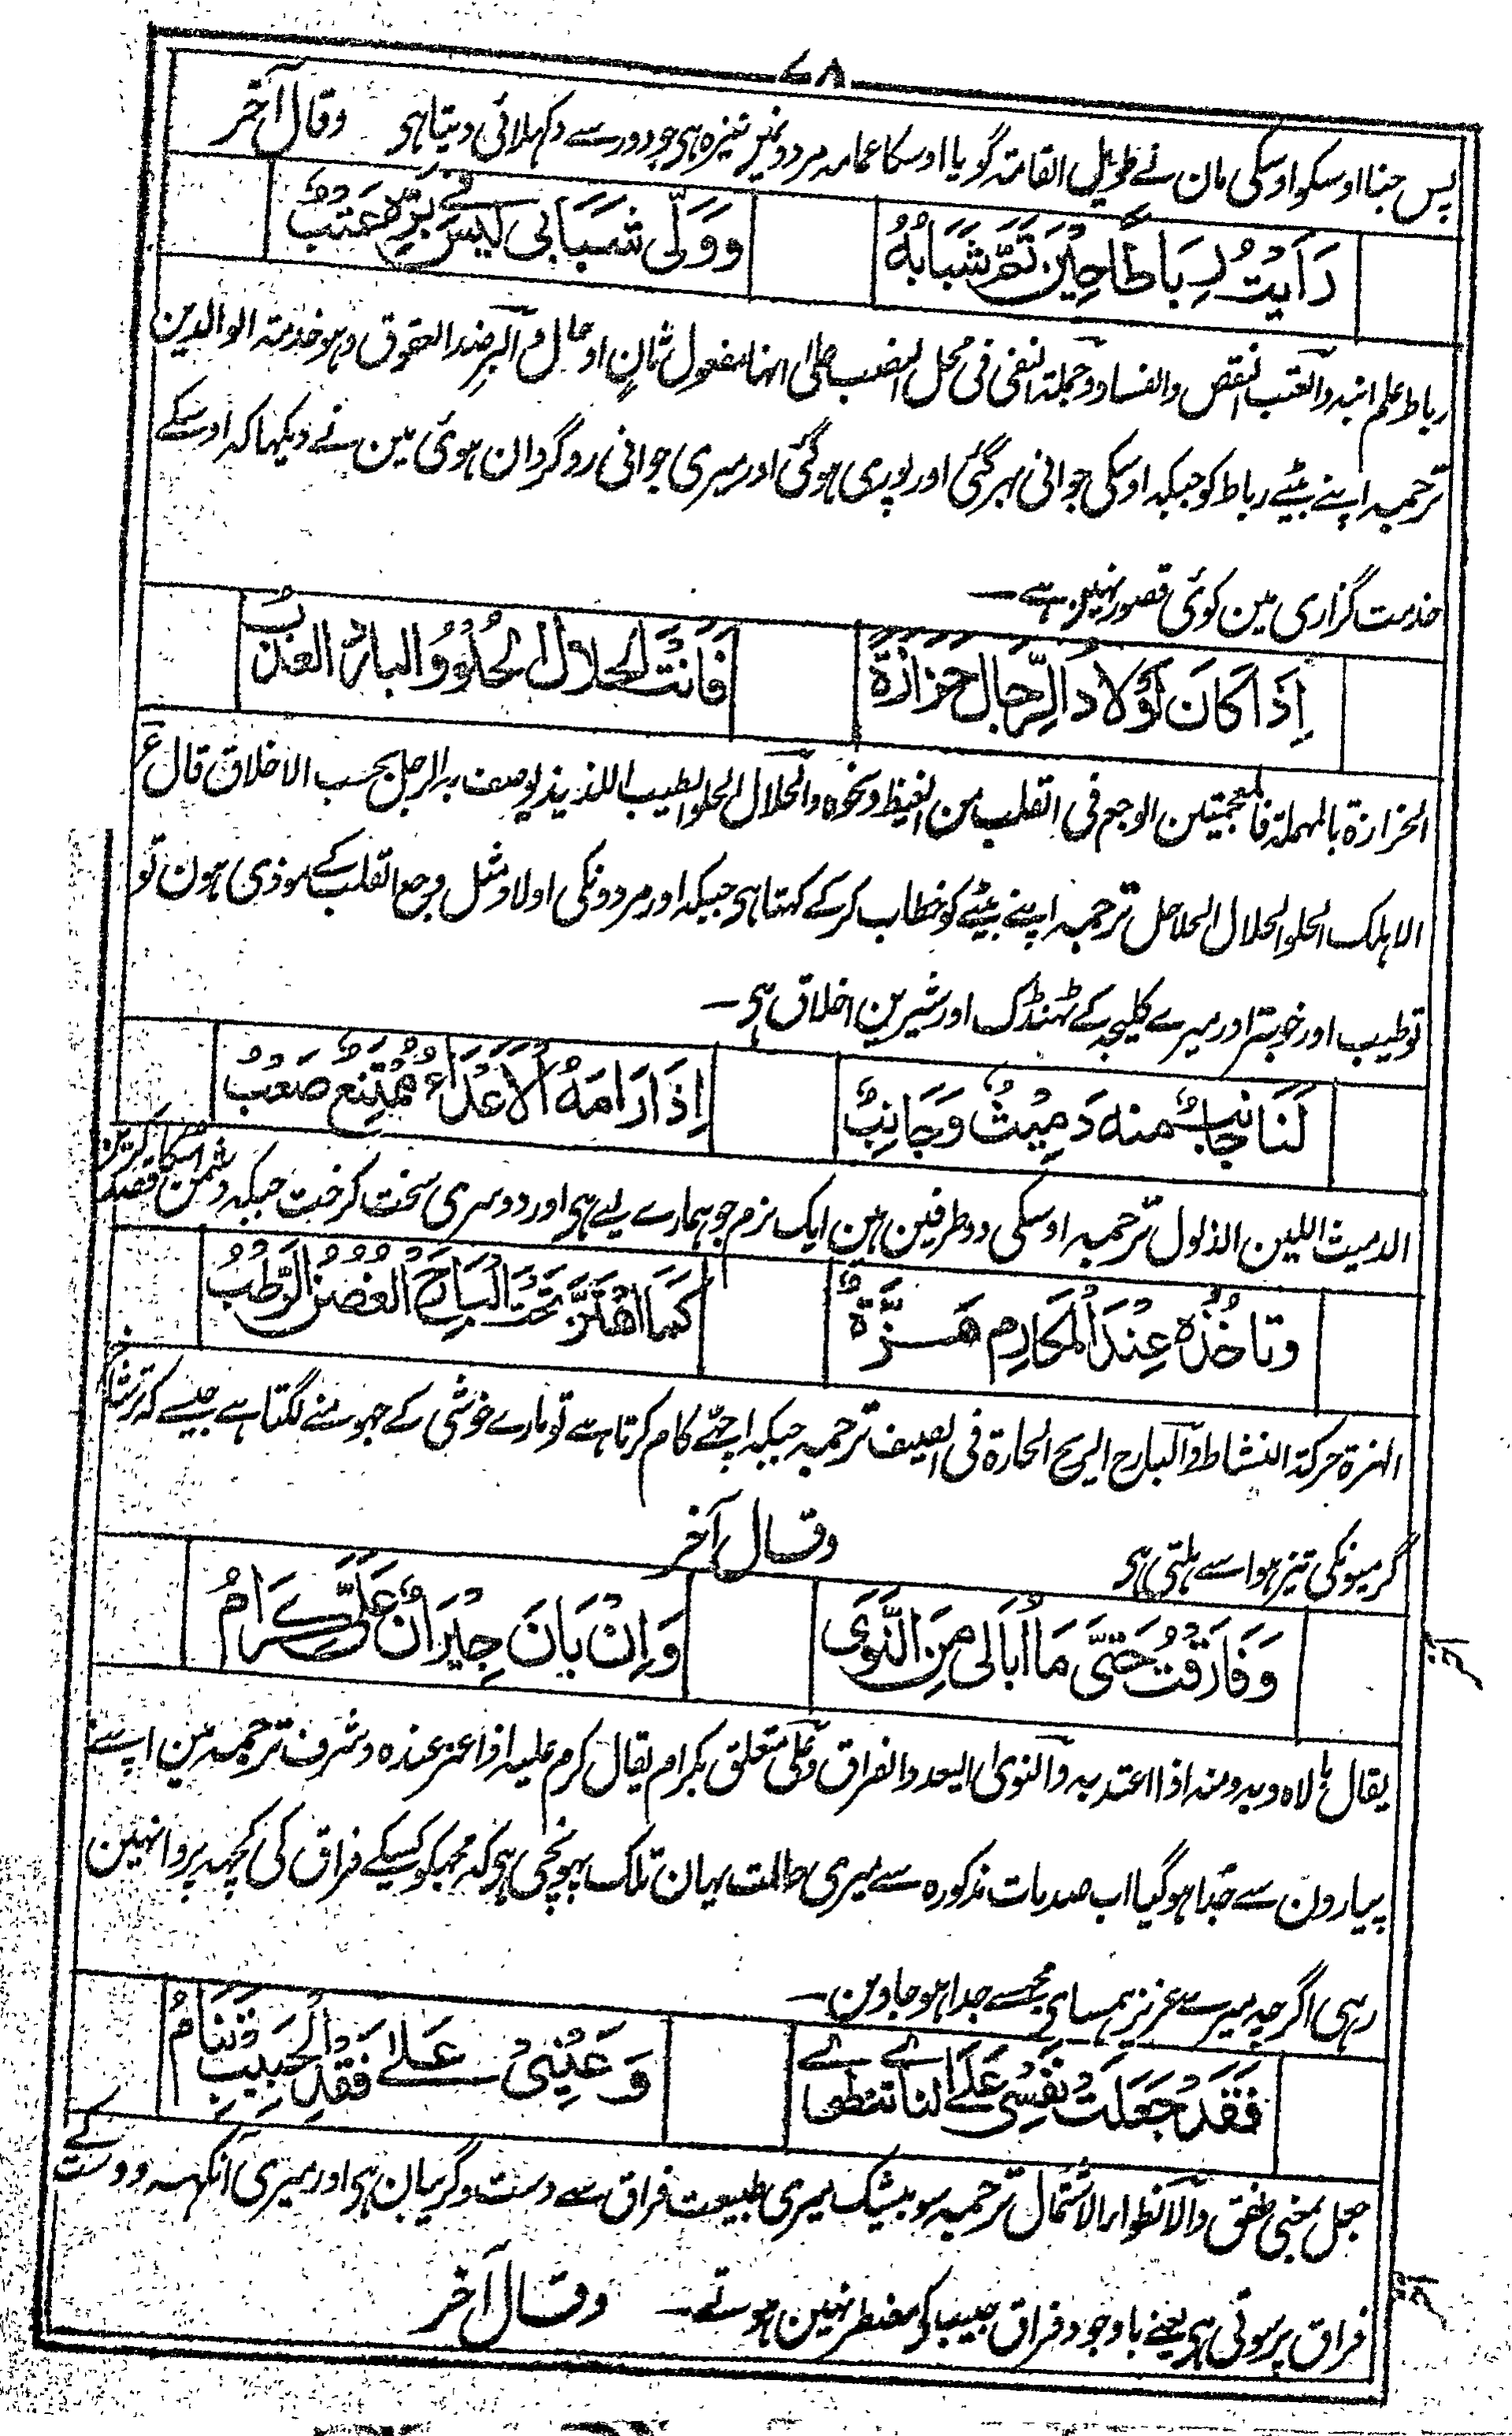 ٦٨
پس جنا اوسکو اوسکی مان نے طویل القامتہ گویا اوسکا عمامہ مردونمیں نیزہ ہی جو دور سے دکہلائی دیتا ہی وقال آخر
رَأَيْتُ رِبَاطًا حِيْنَ تَمَّ شَبَابُهُ وَوَلّٰى شَبَابِى لَيْسَ فِى بِرِّهٖ عَتْبٗ
رباط علم ابنہ والعتب النقص والفساد وجملۃ النفی فی محل النصب علی انہا مفعول ثانٍ او حال والبر ضد العقوق وہو خدمتہ الوالدین
ترجمہ اپنے بیٹے رباط کو جبکہ اوسکی جوانی بہر گئی اور پوری ہوگئی اور میری جوانی روگردان ہوئی مین نے دیکہا کہ اوسکے
خدمت گزاری مین کوئی قصور نہین ہے۔
اِذَا كَانَ اَوْلَادُ الرِّجَالِ حَزَازَةً فَاَنْتَ الْحَلَالُ الْحُلْوُ وَالْبَارِدُ الْعَذْبُ
الحزازۃ بالمہملۃ فالمعجمتین الوجع فی القلب من الغیظ ونحوہ والحلال الحلو الطیب اللذیذ یوصف بہ الرجل بحسب الاخلاق قال ع
الا ہلک الحلو الحلال الحلاحل ترجمہ اپنے بیٹے کو خطاب کرکے کہتا ہی جبکہ اور مردونکی اولاد مثل وجع القلب کے موذی ہون تو
تو طیب اور خوبتر اور میرے کلیجہ کے ٹہنڈک اور شیرین اخلاق ہی۔
لَنَا جَانِبٌ مِنْهُ دَمِيْثٌ وَجَانِبٌ اِذَا رَامَهُ الْاَعْدَاءُ مُمْتَنِعٌ صَعْبُ
الدمیث اللین الذلول ترجمہ اوسکی دو طرفین ہین ایک نرم جو ہمارے لیے ہی اور دوسری سخت کرخت جبکہ دشمن قصد اسکا کرین
وَتَاخُذُهُ عِنْدَ الْمَكَارِمِ هَـزَّةٌ كَمَا اهْتَزَّ تَحْتَ الْبَارِحِ الْغُصُنُ الرَّطْبُ
الہزۃ حرکۃ النشاط والبارح الریح الحارۃ فی الصیف ترجمہ جبکہ اچہے کام کرتا ہے تو مارے خوشی کے جہومنے لگتا ہے جیسے کہ تر شاخ
گرمیونکی تیز ہوا سے ہلتی ہی وقال آخر
وَفَارَقْتُ حَتّٰى مَا اُبَالِى مِنَ النَّوٰى وَاِنْ بَانَ جِيْرَانٌ عَلَىَّ كِرَامُ
یقال بالاہ وبہ ومنہ اذا اعتد بہ والنوی البعد والفراق وعلی متعلق بکرام یقال کرم علیہ اذا عز عندہ وشرف ترجمہ مین اپنے
پیارون سے جدا ہوگیا اب صدمات مذکورہ سے میری حالت یہان تلک پہونچی ہی کہ مجہکو کسیکے فراق کی کچہہ پروا نہین
رہی اگرچہ میرے عزیز ہمسای مجہسے جدا ہو جاوین۔
فَقَدْ جَعَلَتْ نَفْسِى عَلَى النَّاىِ تَنْطَوِى وَعَيْنِى عَلٰى فَقْدِ الْحَبِيْبِ تَنَامُ
جعل بمعنی طفق والانطواء الاشتمال ترجمہ سو بیشک میری طبیعت فراق سے دست وگریبان ہی اور میری آنکہہ دوست کے
فراق پر سوتی ہی یعنے باوجود فراق حبیب کی مضطر نہین ہوتے۔ وقال آخر